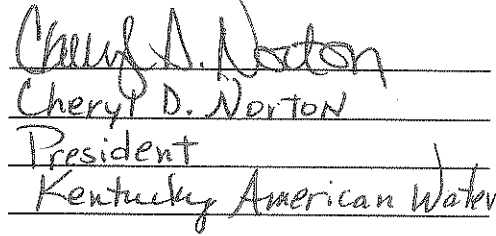 Cheryl D. Norton
Cheryl D. Norton
President
Kentucky American Water